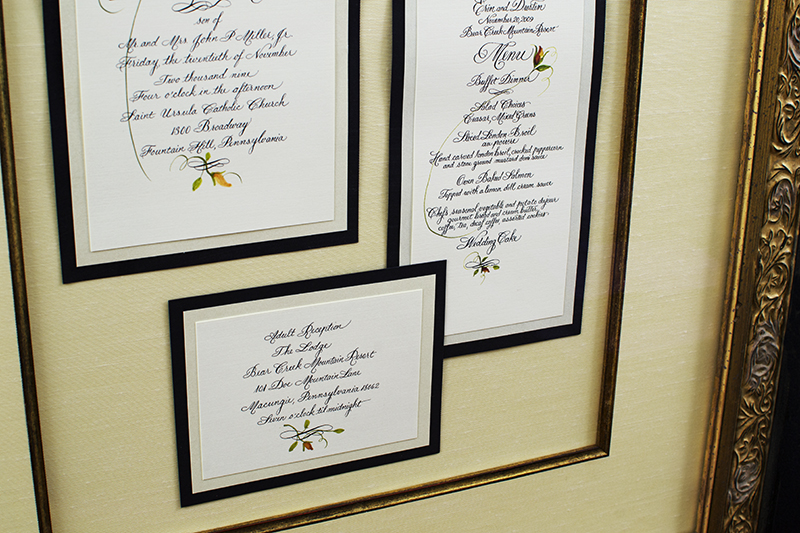 son of
Mr and Mrs John P Miller, Jr
Friday, the twentieth of November
Two thousand nine
Four o'clock in the afternoon
Saint Ursula Catholic Church
1300 Broadway
Fountain Hill, Pennsylvania
Erin and Dustin
November 20, 2009
Bear Creek Mountain Resort
Menu
Buffet Dinner
Salad Choices
Caesar, Mixed Greens
Sliced London Broil
au poivre
Hand carved london broil, cracked peppercorn
and stone ground mustard demi sauce
Oven Baked Salmon
Topped with a lemon, dill, cream sauce
Chef's seasonal vegetable and potato dujour
gourmet bread and cream butter
coffee, tea, decaf coffee, assorted cookies
Wedding Cake
Adult Reception
The Lodge
Bear Creek Mountain Resort
101 Doe Mountain Lane
Macungie, Pennsylvania 18062
Seven o'clock til midnight